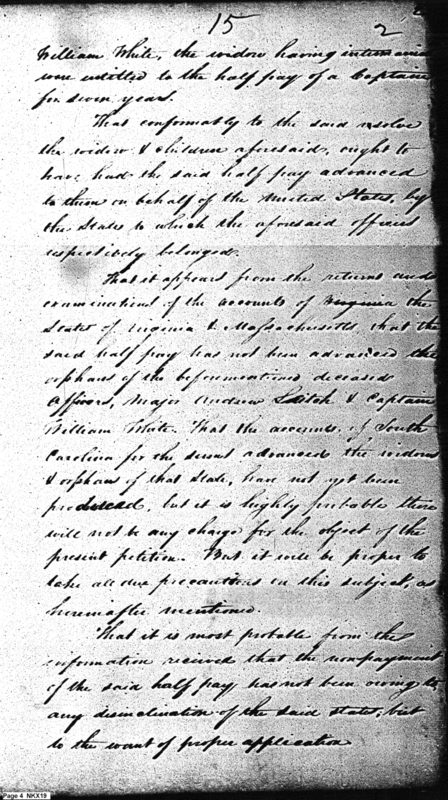 15
2
William White, the widow having intermarried
were entitled to the half pay of a Captain
for seven years.
That conformably to the said resolve
the widow & children aforesaid, ought to
have had the said half pay advanced
to them on behalf of the United States, by
the States to which the aforesaid officers
respectively belonged.
That it appears from the returns and
examinations of the accounts of Virginia the
States of Virginia & Massachusetts, that the
said half pay has not been advanced the
orphans of the beforementioned deceased
officers, Major Andrew Leitch & Captain
William White. That the accounts of South
Carolina for the sums advanced the widows
& orphans of that State, have not yet been
produced, but it is highly probable there
will not be any charge for the object of the
present petition. But it will be proper to
take all due precautions on this subject, as
hereinafter mentioned.
That it is most probable from the
information received that the nonpayment
of the said half pay has not been owing to
any disinclination of the said states, but
to the want of proper application
Page 4 NKX19